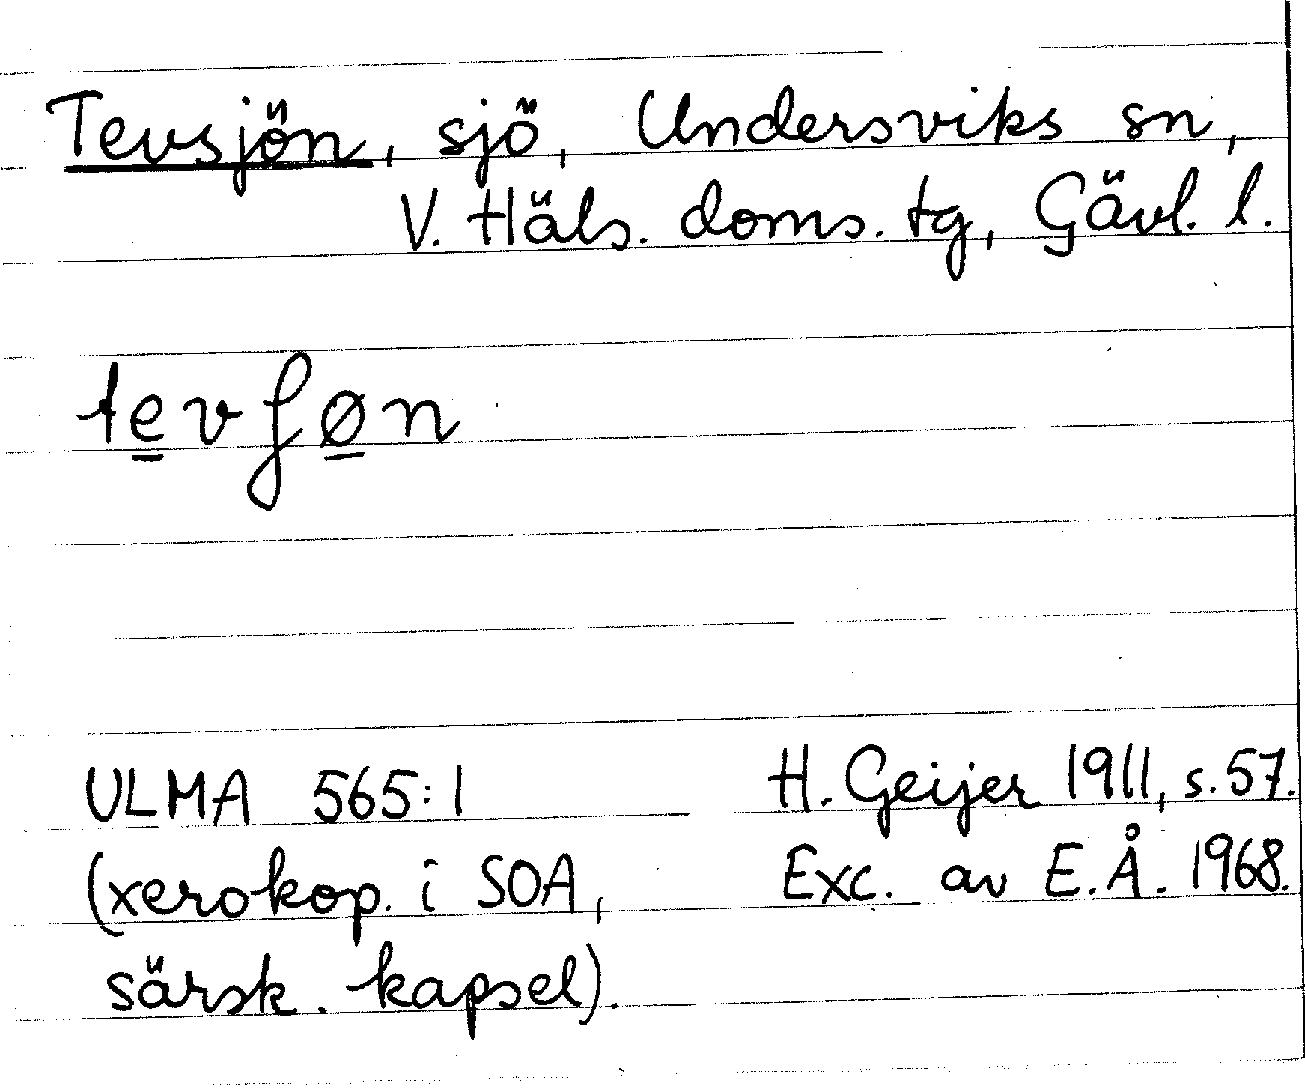 Tevsjön, sjö, Undersviks sn,
V. Häls. doms. tg, Gävl. l.
tevʃøn
ULMA 565:1 H. Geijer 1911, s. 57.
(xerokop. i SOA, Exc. av E.Å. 1968.
särsk. kapsel).